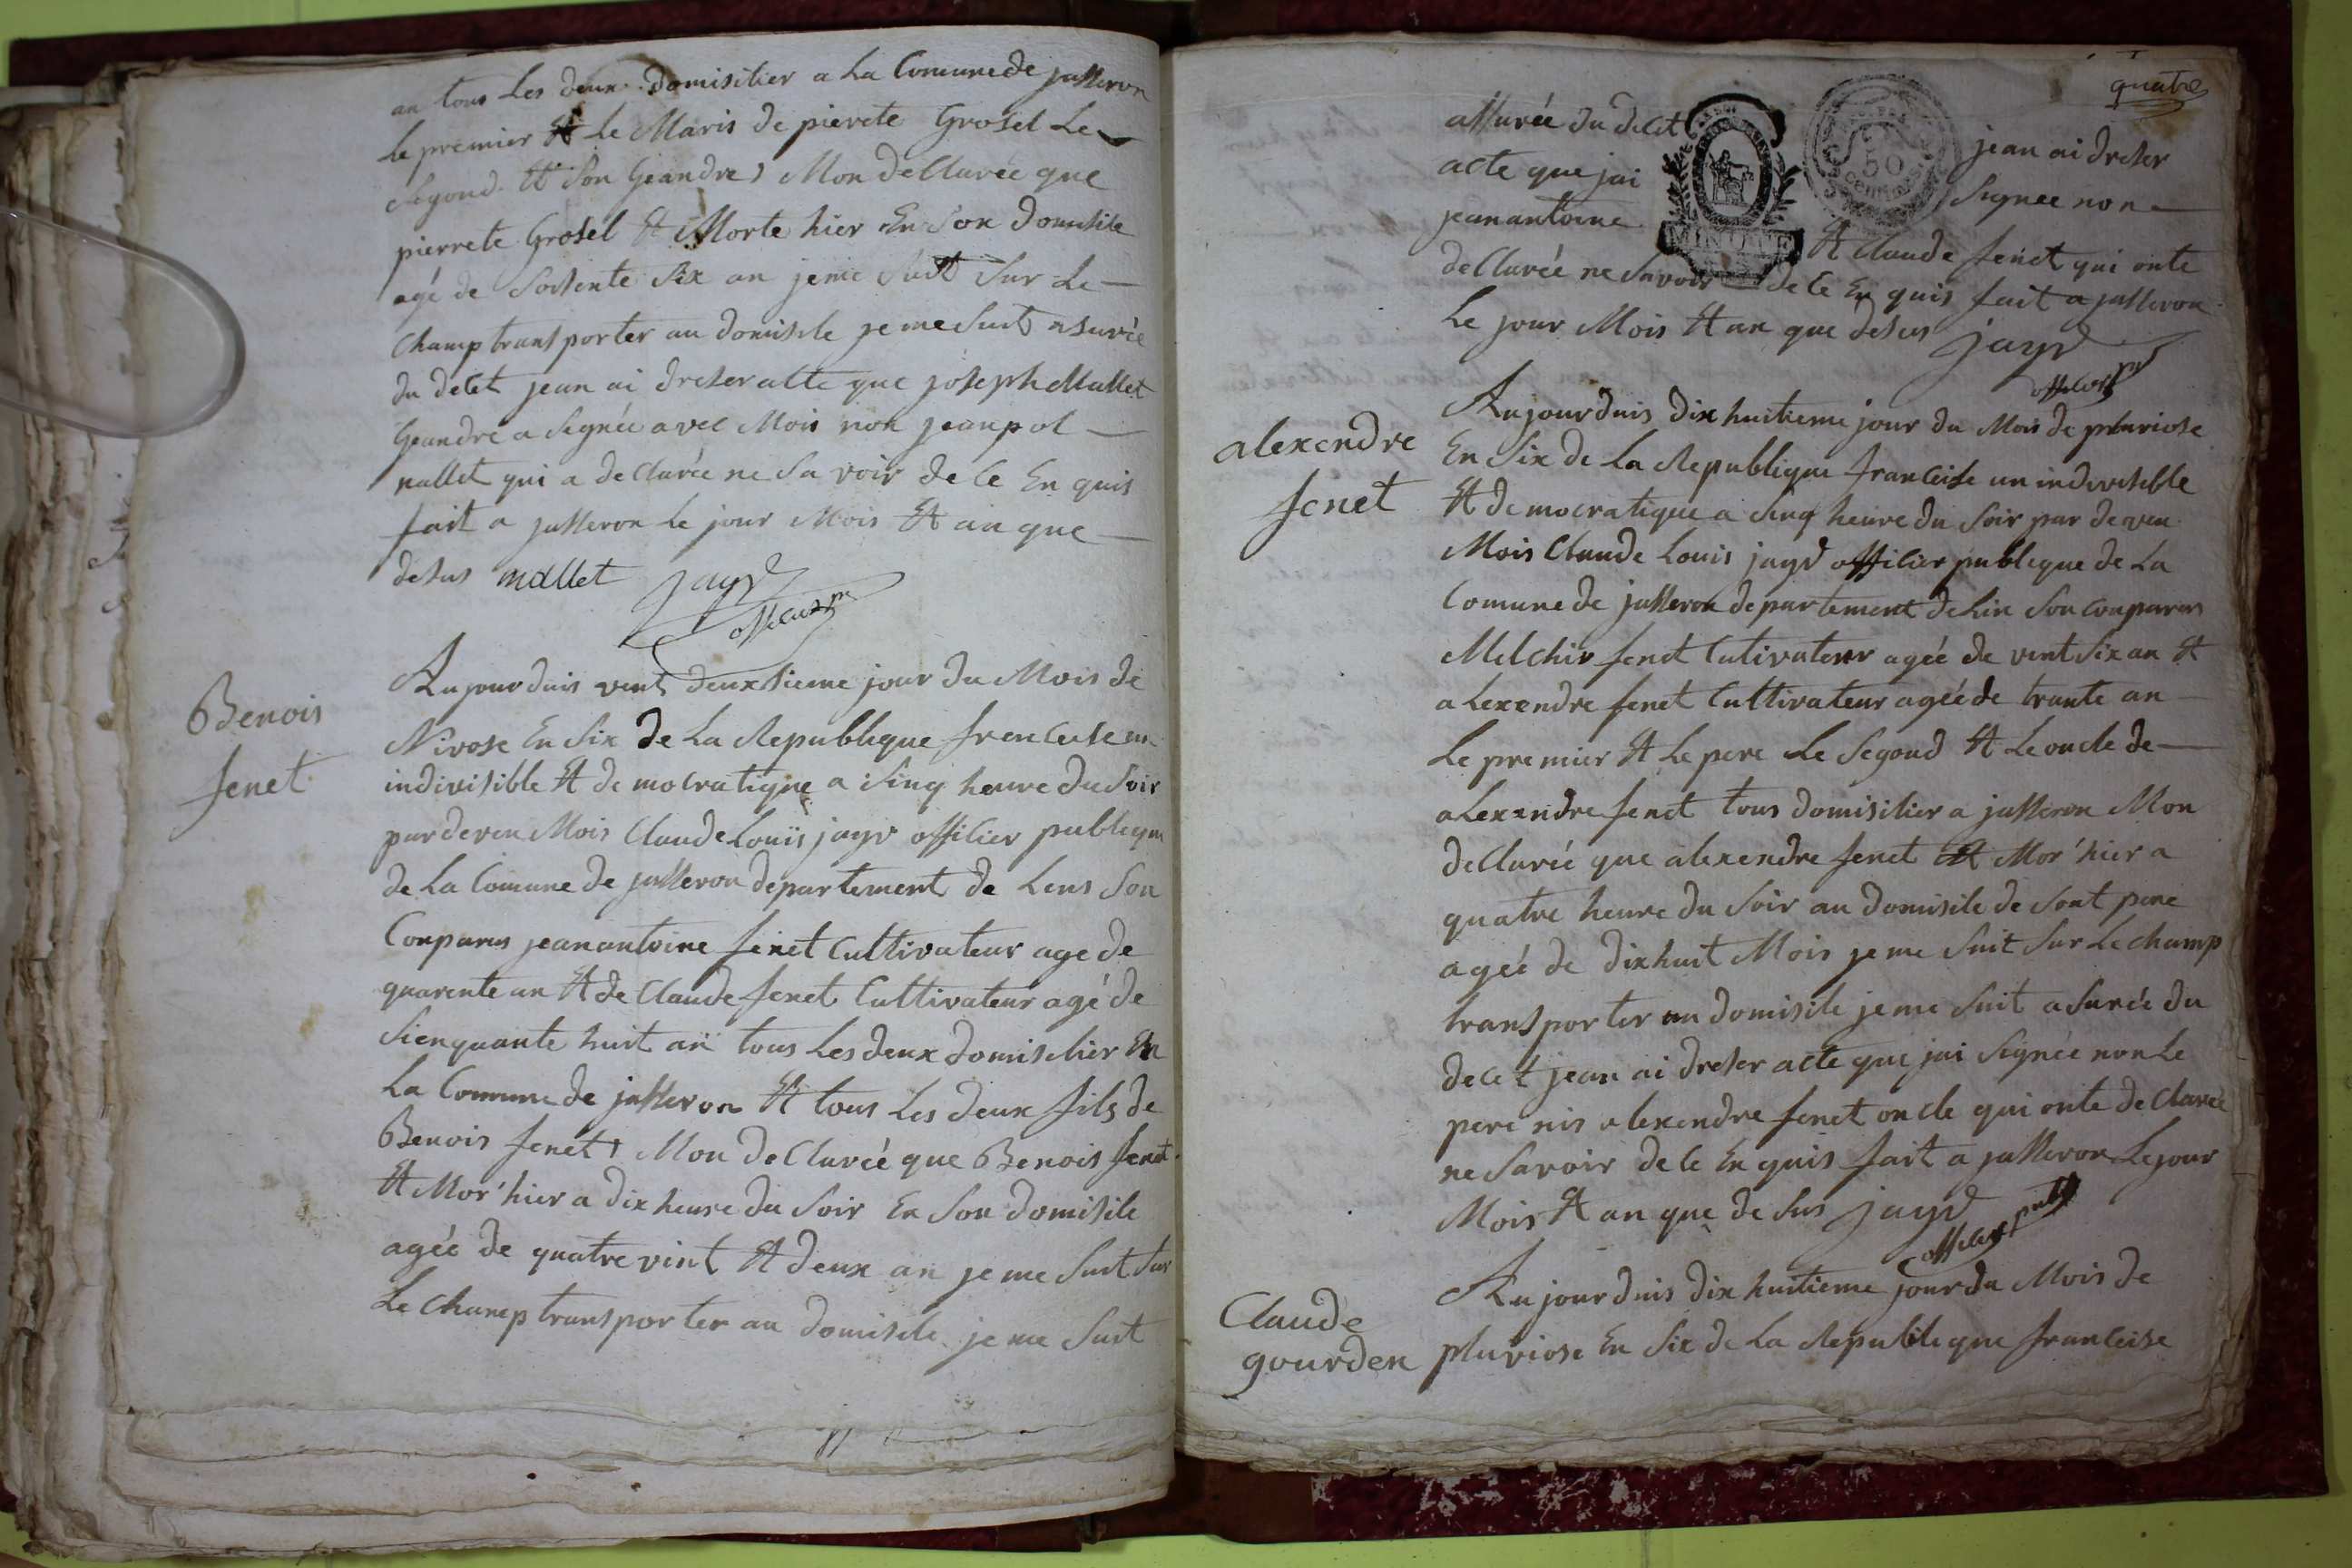 an tous Les deux domisilier a La Comune de jasseron
Le premier Et Le Maris de pierete Grosel Le
Segond Et Son Geandre Mon deClarée que
pierrete Grosel Et Morte hier En Son domisile
agé de Soisente Six an jeme Suit Sur Le
Champ transporter au domisile je me Suit asurée
du decet jean ai dreser atte que joseph Mallet
Geandre a Signée avec Mois non jean pol
nallet qui a declarée ne Savoir de Ce En quis
fait a jasseron Le jour Mois Et an que
desus mallet jayr
officier p
Benois
fenet
Aujourduis vint deuxsieme jour du Mois de
Nivose En Six de La Republique franceise un
indivisible Et democratique a Sinq heure du Soir
pardeven Mois Claude Louis jayr officier publique
de La Comune de jasseron departement de Lens Son
Conparus jeanantoine fenet Cultivateur age de
quarente an Et de Claude fenet Cultivateur agé de
Sienquante huit an tous Les deux domisilier En
La Comune de jasseron Et tous Les deux fils de
Benois fenet Mon deClarée que Benois fenet
Et Mor hier a dix heure du Soir En Son domisile
agée de quatre vint Et deux an je me Suit Sur
Le Champ transporter au domisile je me Suit
quatre
assurée du decet jean ai dreser
acte que jai Signee non
50
centimes
MINUTE
jeanantoine Et Claude fenet qui onte
deClarée ne Savoir de Ce En quis fait a jasseron
Le jour Mois Et an que desus jayr
officier p
alexendre
fenet
Aujourduis dix huitieme jour du Mois de pluviose
En Six de La Republique franceise un indivisible
Et democratique a Sinq heure du Soir par deven
Mois Claude Louis jayr officier publique de La
Comune de jasseron departement de Lin Son Conparus
Melchir fenet Cutivateur agée de vint Six an Et
aLexendre fenet Cultivateur agée de trante an
Le premier Et Le pere Le Segond Et Le oncle de
aLexendre fenet tous domisilier a jasseron Mon
deClarée que alexendre fenet Et Mor hier a
quatre heure du Soir au domisile de Sont pere
agée de dix huit Mois je me Suit Sur Le champ
transporter au domisile je me Suit asurée du
decet jean ai dreser acte que jai Signée non Le
pere nis alexendre fenet oncle qui onte declarée
ne Savoir de Ce En quis fait a jasseron Le jour
Mois Et an que de Sus jayr
officier
Claude
gourden
Aujourduis dix huitieme jour du Mois de
pluviose En Six de La Republique franceise